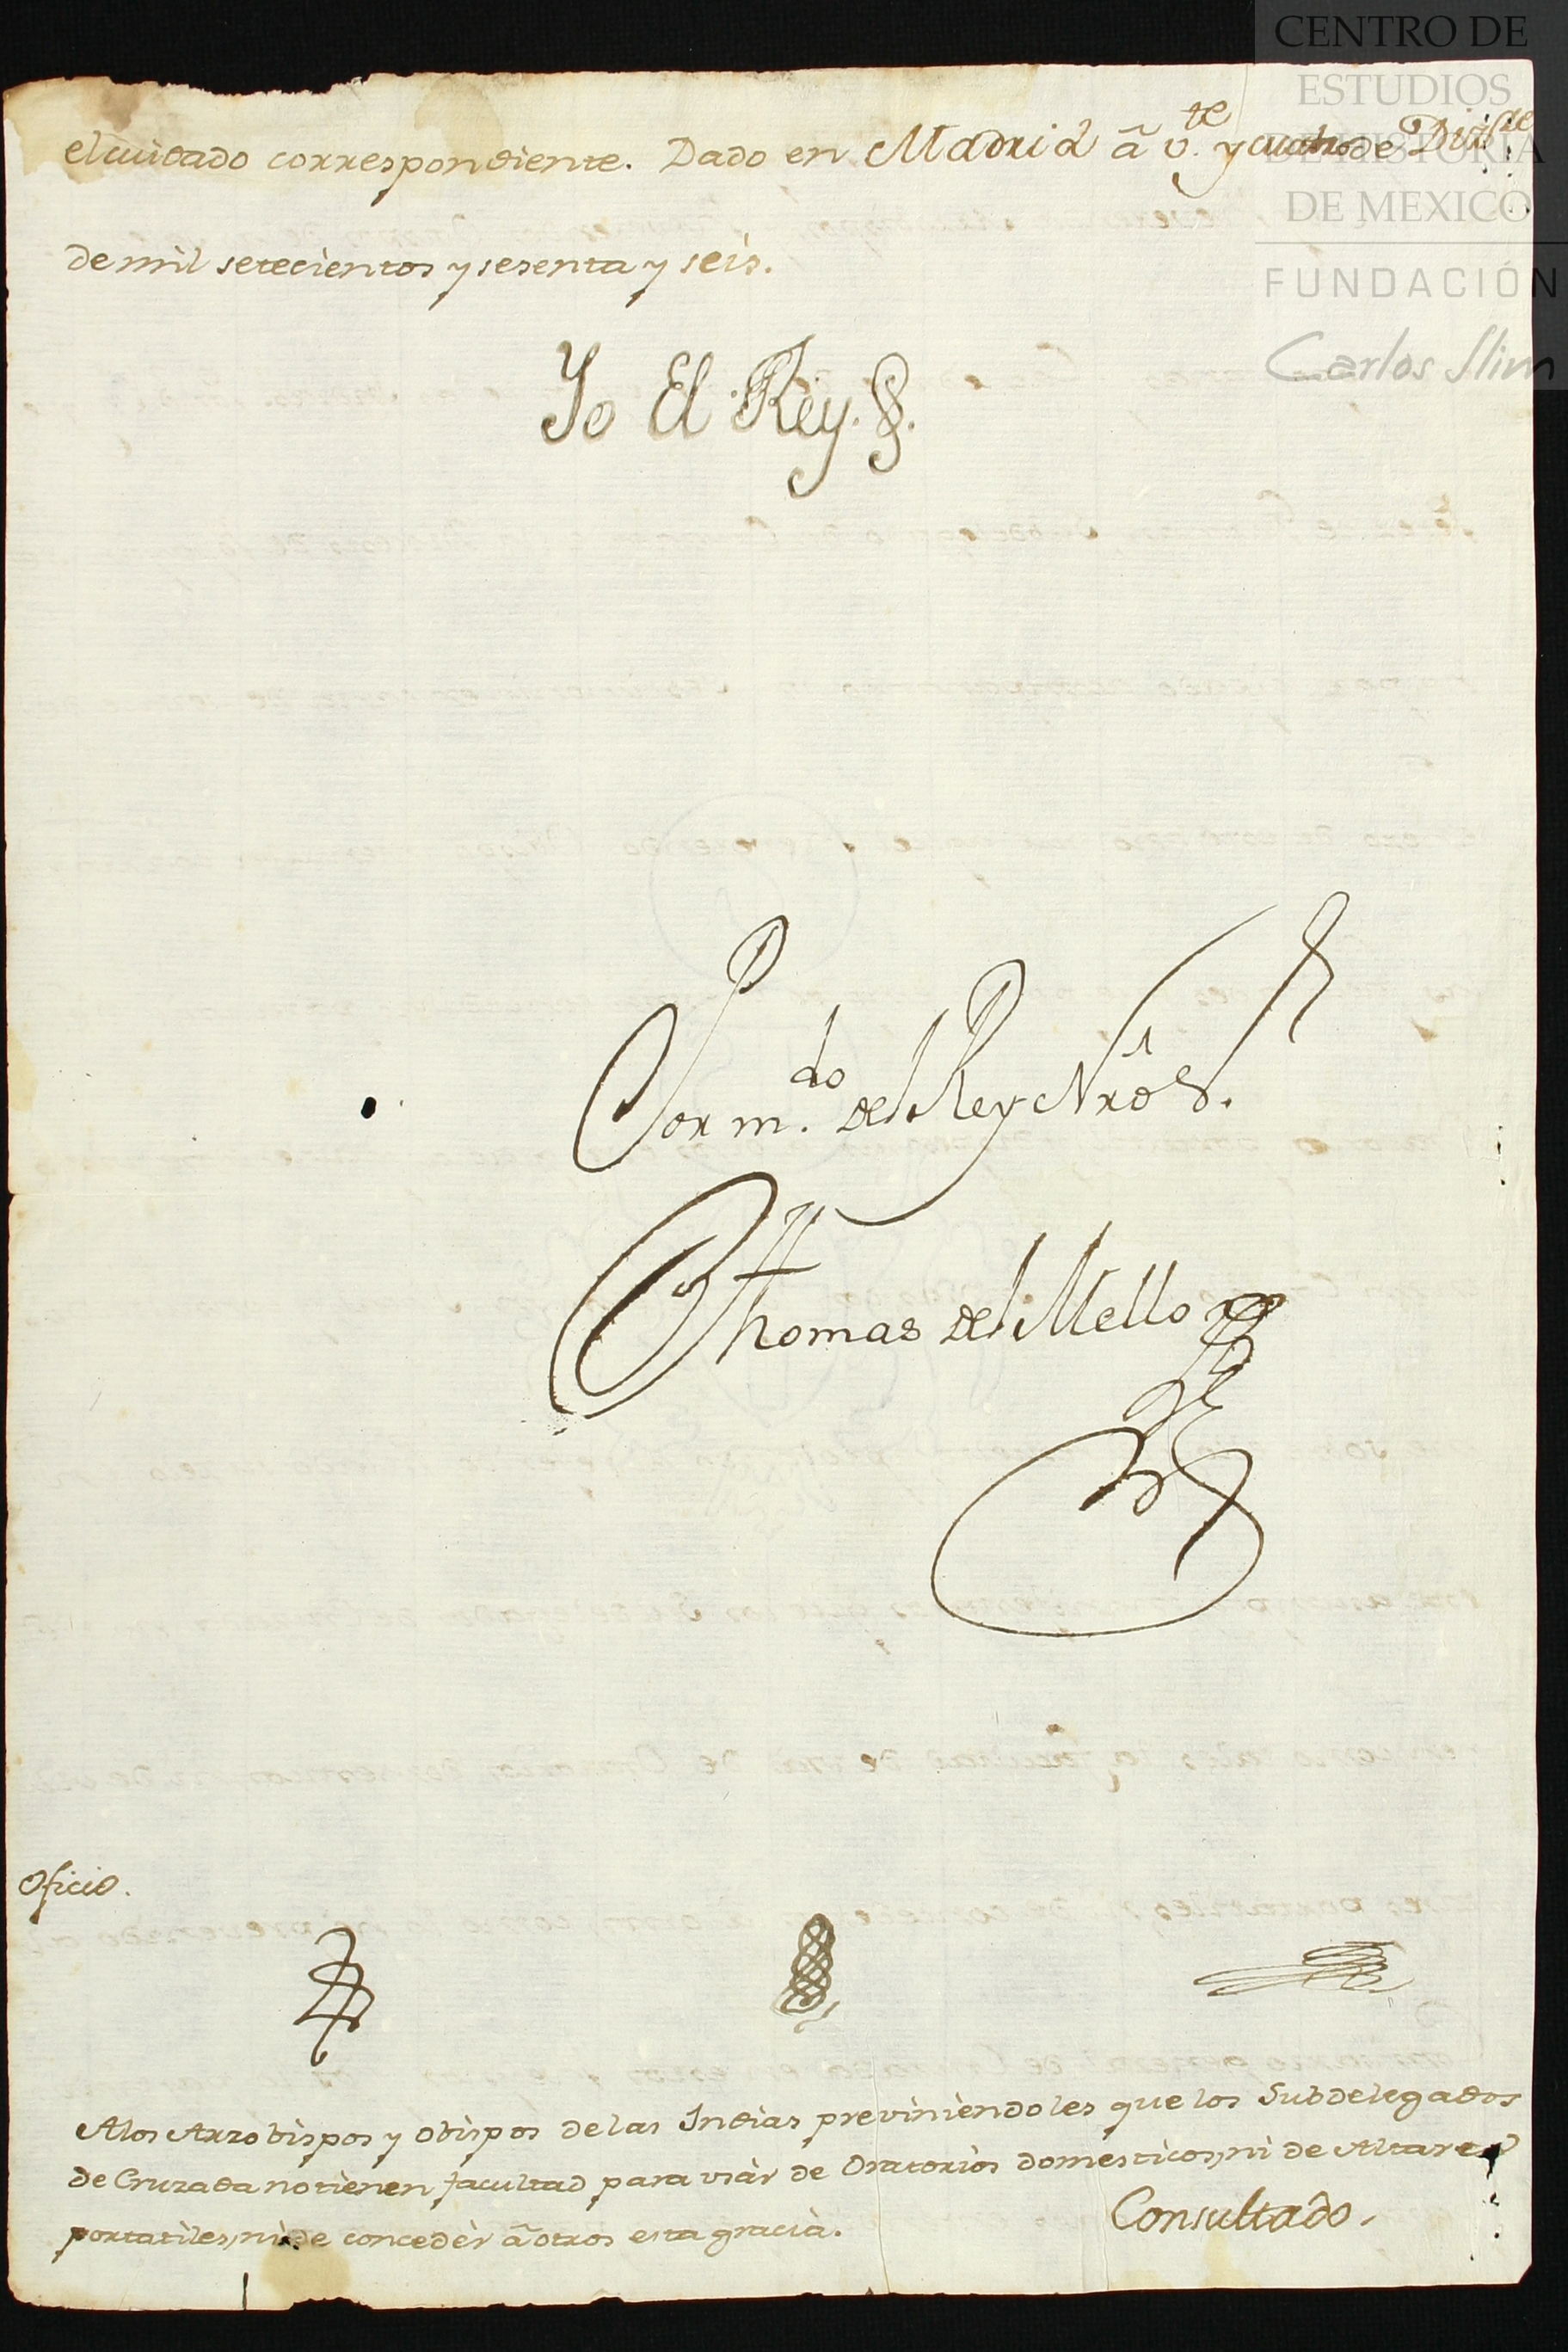 CENTRO DE
ESTUDIOS
DE HISTORIA
DE MEXICO
FUNDACIÓN
Carlos Slim
el cuidado correspondiente. Dado en Madrid â v.te y cuatro de Diz.re
de mil setecientos y sesenta y seis.
Yo El Rey.
Por m.do del Rey Nrô S.r
Thomas del Mello
Oficio.
A los Arzobispos y Obispos de las Indias previniendoles que los Subdelegados
de Cruzada no tienen facultad para usàr de Oratorios domesticos, ni de Altares
portatiles, ni de concedèr â otros esta gracia.
Consultado.